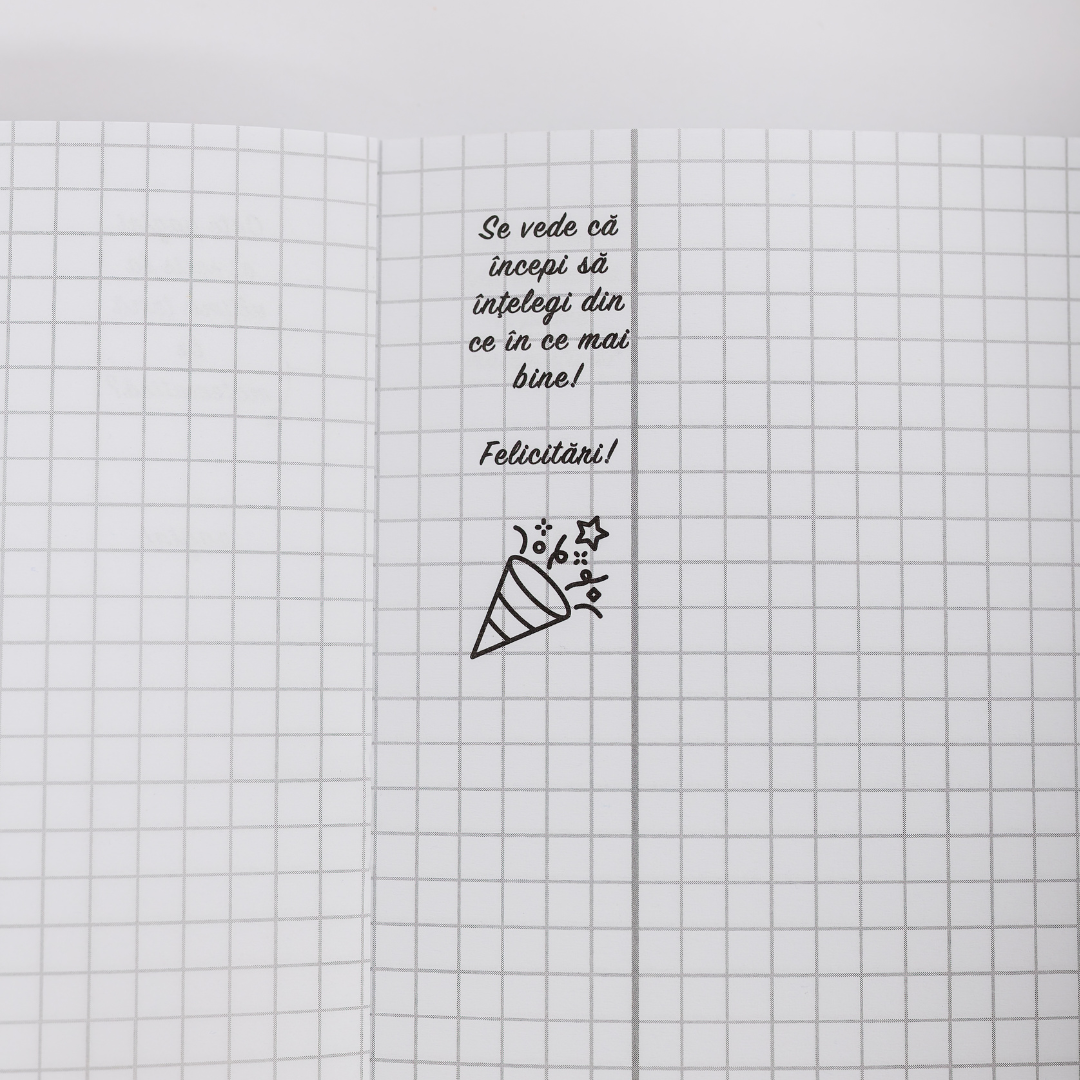 Se vede că
începi să
înţelegi din
ce în ce mai
bine!
Felicitări!